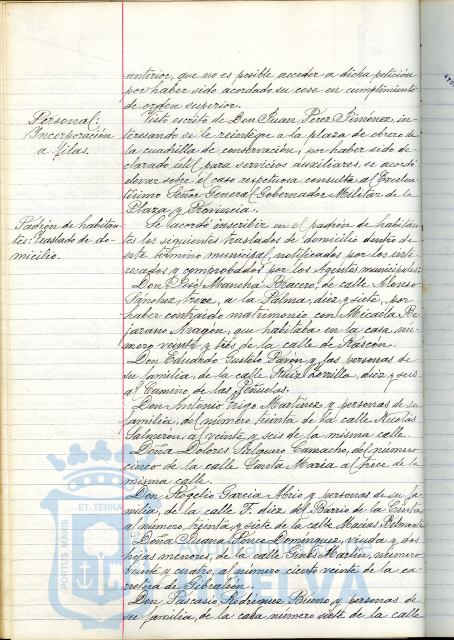 anterior, que no es posible acceder a dicha petición
por haber sido acordado su cese en cumplimiento
de orden superior.
Personal:
Incorporación
a filas.
Visto escrito de Don Juan Pérez Jiménez, in-
teresando se le reintegre a la plaza de obrero de
la cuadrilla de conservación, por haber sido de-
clarado útil para servicios auxiliares, se acordó
elevar sobre el caso respetuosa consulta al Excelen-
tísimo Señor General Gobernador Militar de la
Plaza y Provincia.
Padrón de habitan-
tes: traslado de do-
micilio.
Se acordó inscribir en el padrón de habitan-
tes los siguientes traslados de domicilio dentro de
este término municipal, notificados por los inte-
resados y comprobados por los Agentes municipales:
Don José Mancha Bracero, de calle Alonso
Sánchez, trece, a la Palma, diez y siete, por
haber contraído matrimonio con Micaela Be-
jarano Aragón, que habitaba en la casa nú-
mero veinte y tres de la calle de Rascón.
Don Eduardo y las personas de
su familia, de la calle Ruiz Zorrilla, diez y seis
al Camino de las Peñuelas.
Don Antonio Trigo Martínez y personas de su
familia, del número treinta de la calle Nicolás
Salmerón, a veinte y seis de la misma calle.
Doña Dolores Salguero Camacho, del número
cinco de la calle Santa María al trece de la
misma calle.
Don Rogelio García y personas de su fa-
milia, de la calle F. diez del Barrio de la Cinta,
al número treinta y siete de la calle Macías Belmonte
Doña Juana Ponce Domínguez, viuda y dos
hijas menores, de la calle Ginés Martín, número
veinte y cuatro, al número ciento veinte de la ca-
rretera de Gibraleón.
Don Pascasio Rodríguez Bueno y personas de
su familia, de la casa número siete de la calle
PORTUS MARIS ET TERRAE
HUELVA